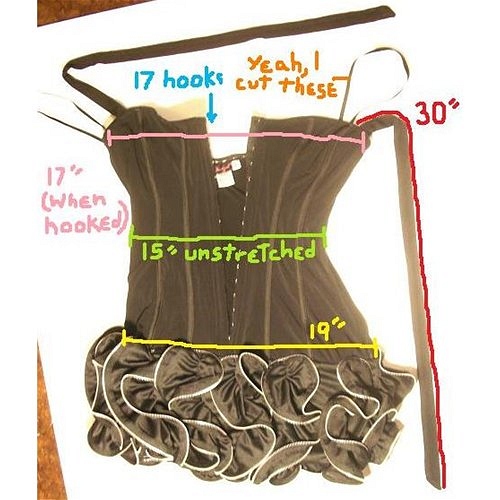 17 hooks
Yeah, I
cut these
30"
17"
(when
hooked)
15" unstretched
19"